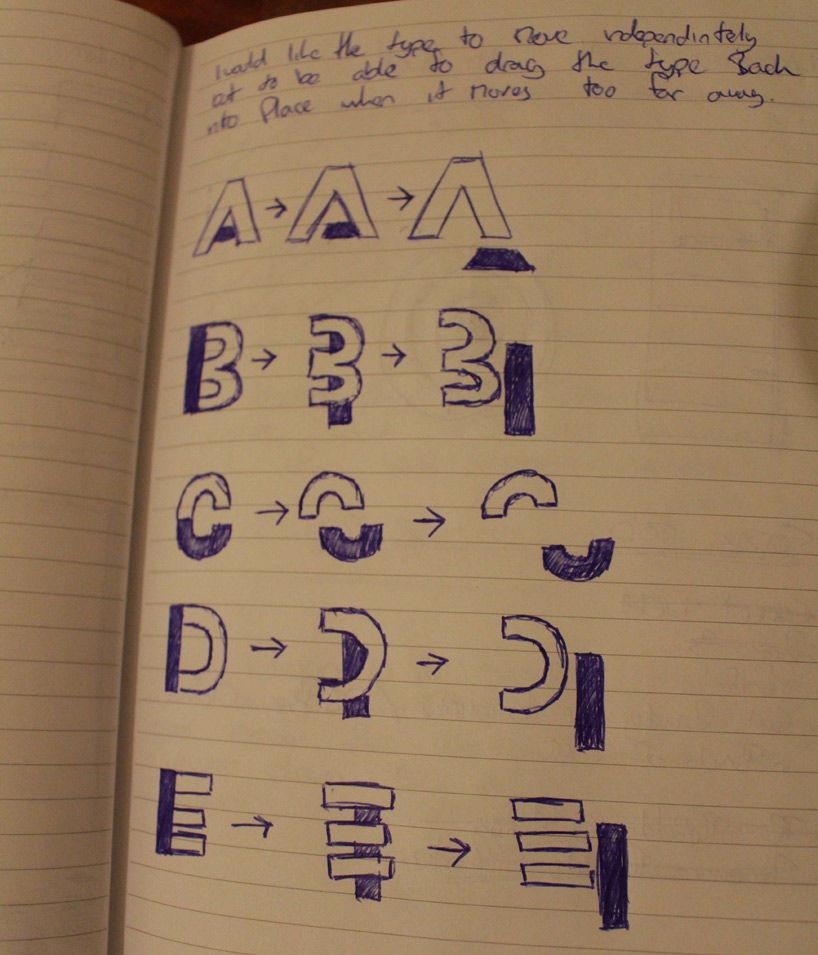 I would like the type to move independintely
but to be able to drag the type Back
into Place when it moves too far away.
A → A → A
B → B → B
C → C → C
D → D → D
E → E → E